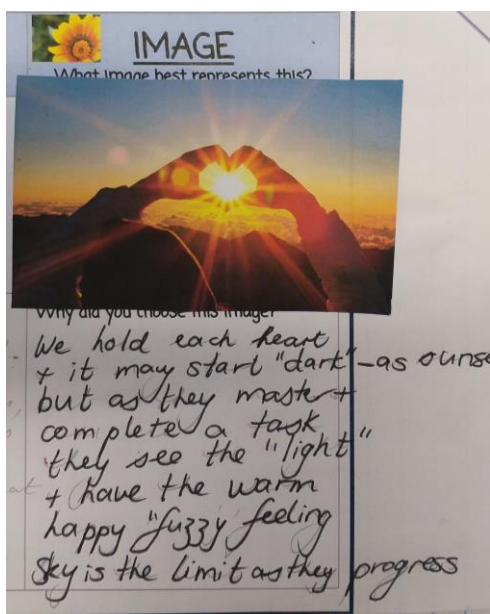 IMAGE
What image best represents this?
Why did you choose this image?
We hold each heart
+ it may start "dark" - as
but as they master +
complete a task
they see the "light"
+ have the warm
happy "fuzzy feeling
Sky is the limit as they progress